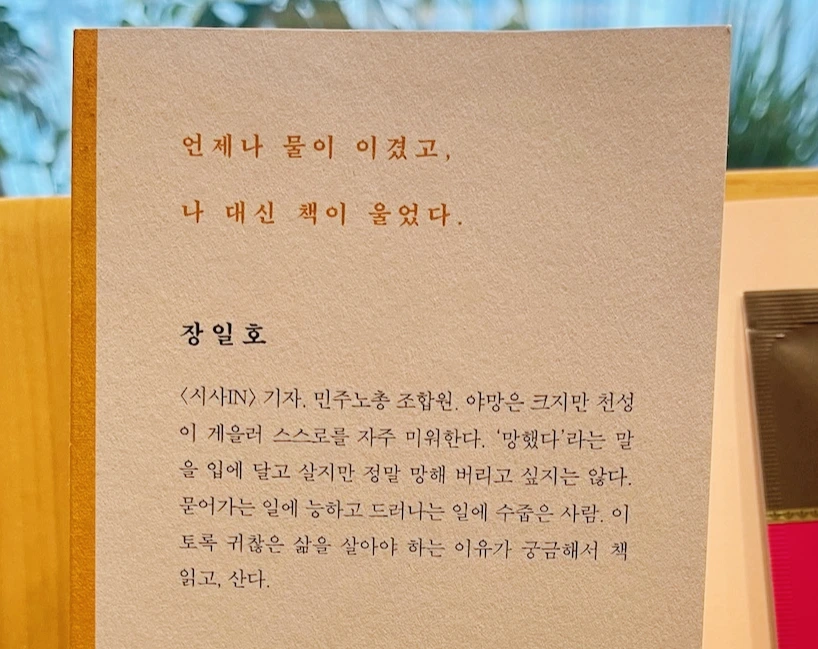 언제나 물이 이겼고,
나 대신 책이 울었다.
장일호
〈시사IN〉 기자. 민주노총 조합원. 야망은 크지만 천성
이 게을러 스스로를 자주 미워한다. ‘망했다’라는 말
을 입에 달고 살지만 정말 망해 버리고 싶지는 않다.
묻어가는 일에 능하고 드러나는 일에 수줍은 사람. 이
토록 귀찮은 삶을 살아야 하는 이유가 궁금해서 책
읽고, 산다.